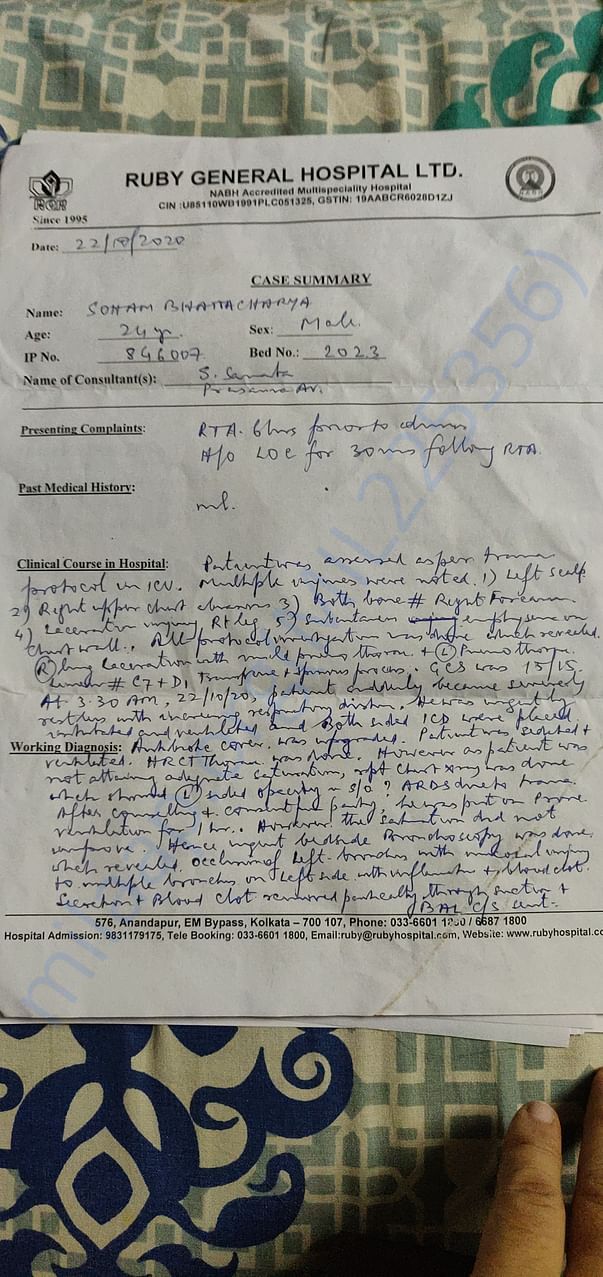 RUBY GENERAL HOSPITAL LTD.
NABH Accredited Multispeciality Hospital
CIN :U85110WB1991PLC051325, GSTIN: 19AABCR6028D1ZJ
RGH
Since 1995
Date: 22/10/2020
CASE SUMMARY
Name: SOHAM BHATTACHARYA
Age: 24 yr. Sex: Male.
IP No. 846007 Bed No.: 2023
Name of Consultant(s): S.
Presenting Complaints: RTA. 6hrs prior to
H/o LOC for 30mns following RTA.
Past Medical History:
nil.
Clinical Course in Hospital: Patient was assessed as per trauma
protocol in ICU. Multiple injuries were noted. 1) Left scalp
2) Right upper chest abrasions 3) Both bone # Right Forearm
4) Laceration injury Rt leg 5) Subcutaneous emphysema on
chest wall. All protocol investigation was done which revealed.
(R) lung laceration with mild pneumo thorax + (L) Pneumothorax.
# C7 + D1 Transverse + spinous process. GCS was 15/15.
At 3.30 AM, 22/10/20, patient suddenly became severely
restless with increasing respiratory distress. He was urgently
intubated and ventilated and Both sided ICD were placed
Working Diagnosis: Antibiotic cover was upgraded. Patient was sedated +
ventilated. HRCT Thorax was done. However as patient was
not attaining adequate saturation, rpt chest xray was done
which showed (L) sided opacity - s/o ? ARDS due to trauma.
After counselling + consent of party, he was put on Prone
ventilation for 1 hr.. However the saturation did not
improve. Hence urgent bedside Bronchoscopy was done
which revealed occlusion of left bronchus with mucosal injury
to multiple bronchus on Left side with inflammation + blood clot.
Secretion + Blood clot removed partially through suction +
BAL C/S sent.
576, Anandapur, EM Bypass, Kolkata – 700 107, Phone: 033-6601 1800 / 6687 1800
Hospital Admission: 9831179175, Tele Booking: 033-6601 1800, Email:ruby@rubyhospital.com, Website: www.rubyhospital.co